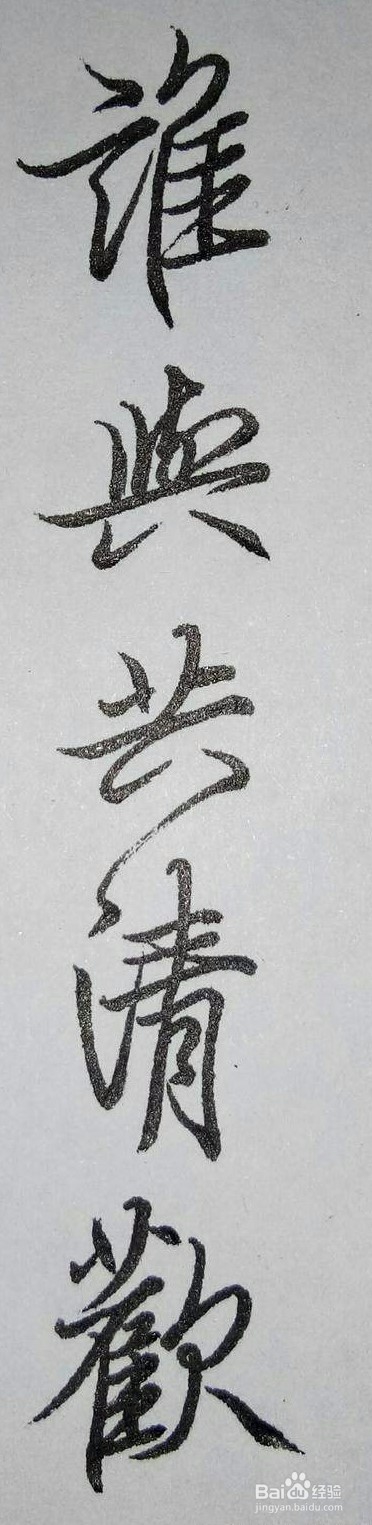 誰與共清歡
Baidu经验
jingyan.baidu.com